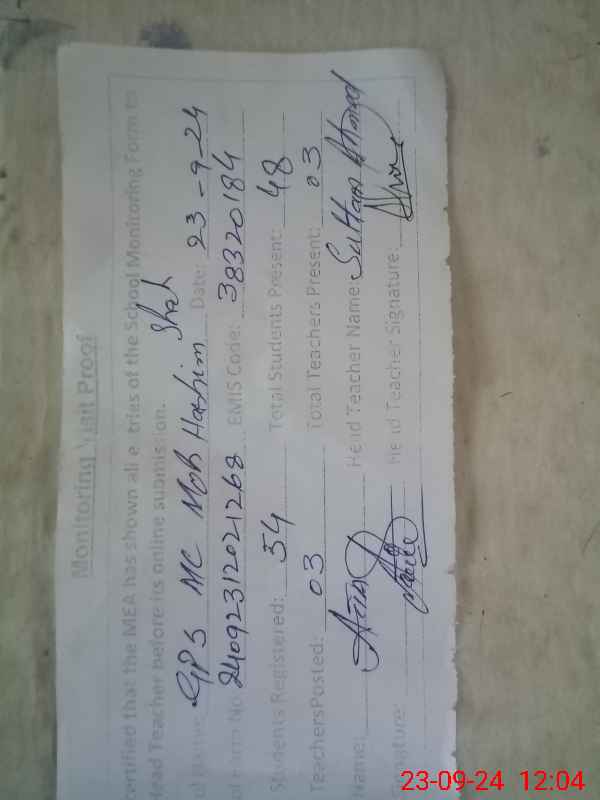 Monitoring Visit Proof
certified that the MEA has shown all e tries of the School Monitoring Form to
Head Teacher before its online submission.
ol Name: GPS MC Moh Hashim Shah Date: 23-9-24
No 2409231202 1268 EMIS Code: 38320184
Students Registered: 54 Total Students Present: 48
Teachers Posted: 03 Total Teachers Present: 03
Name: Head Teacher Name: Sultan Ahmad
nature: Head Teacher Signature:
23-09-24 12:04